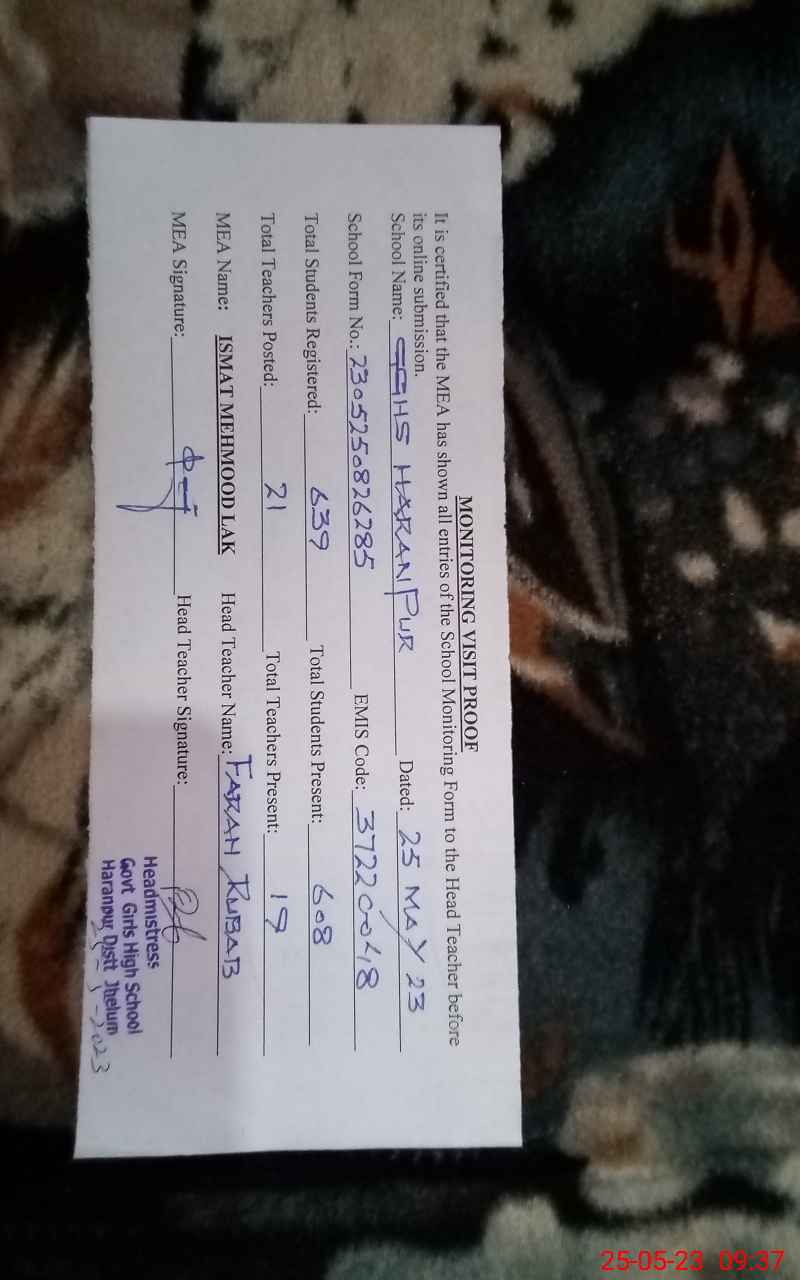 MONITORING VISIT PROOF
It is certified that the MEA has shown all entries of the School Monitoring Form to the Head Teacher before
its online submission.
School Name: GGHS HARANPUR Dated: 25 MAY 23
School Form No.: 2305250826285 EMIS Code: 37220048
Total Students Registered: 639 Total Students Present: 608
Total Teachers Posted: 21 Total Teachers Present: 19
MEA Name: ISMAT MEHMOOD LAK Head Teacher Name: FARAH RUBAB
MEA Signature: Head Teacher Signature:
Headmistress
Govt Girls High School
Haranpur Distt Jhelum
25-05-23 09:37